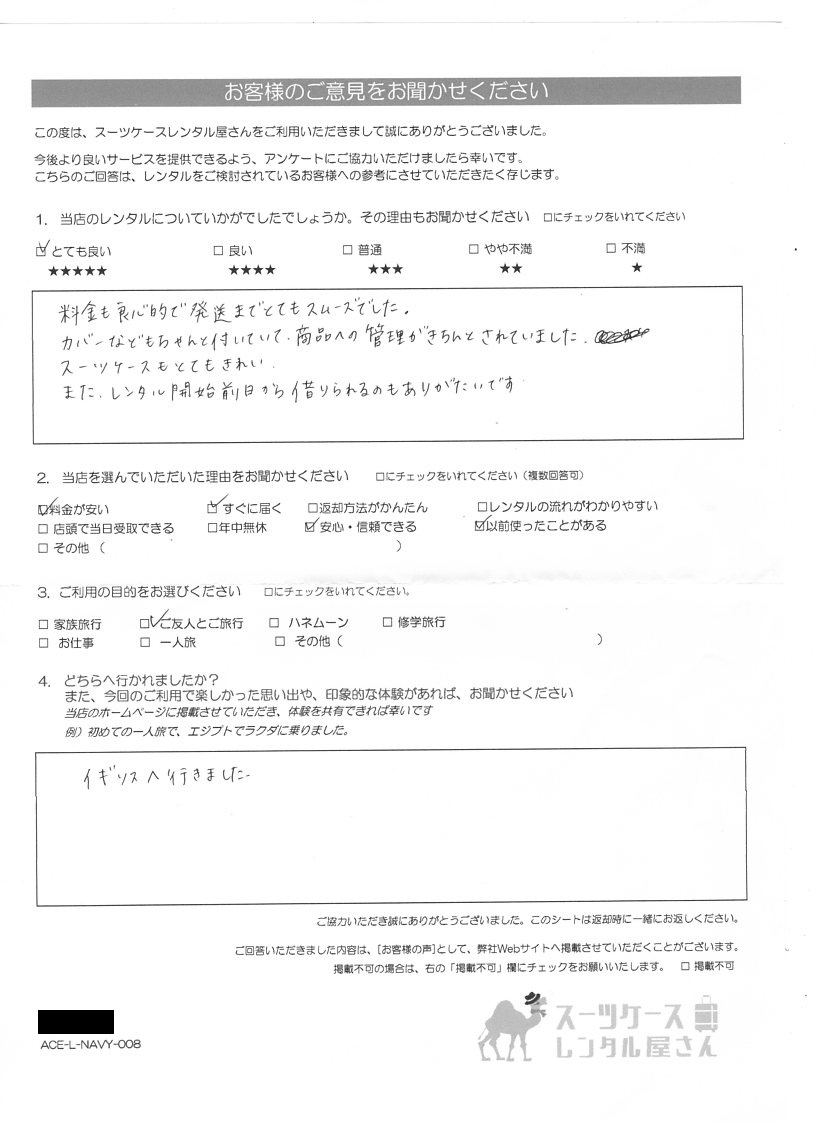 お客様のご意見をお聞かせください
この度は、スーツケースレンタル屋さんをご利用いただきまして誠にありがとうございました。
今後より良いサービスを提供できるよう、アンケートにご協力いただけましたら幸いです。
こちらのご回答は、レンタルをご検討されているお客様への参考にさせていただきたく存じます。
1. 当店のレンタルについていかがでしたでしょうか。その理由もお聞かせください □にチェックをいれてください
☑ とても良い □ 良い □ 普通 □ やや不満 □ 不満
★★★★★ ★★★★ ★★★ ★★ ★
料金も良心的で発送までとてもスムーズでした。
カバーなどもちゃんと付いていて、商品への管理がきちんとされていました。
スーツケースもとてもきれい。
また、レンタル開始前日から借りられるのもありがたいです
2. 当店を選んでいただいた理由をお聞かせください □にチェックをいれてください(複数回答可)
☑料金が安い ☑すぐに届く □返却方法がかんたん □レンタルの流れがわかりやすい
□ 店頭で当日受取できる □年中無休 ☑ 安心・信頼できる ☑以前使ったことがある
□ その他 ( )
3. ご利用の目的をお選びください □にチェックをいれてください。
□ 家族旅行 ☑ご友人とご旅行 □ ハネムーン □ 修学旅行
□ お仕事 □ 一人旅 □ その他 ( )
4. どちらへ行かれましたか?
また、今回のご利用で楽しかった思い出や、印象的な体験があれば、お聞かせください
当店のホームページに掲載させていただき、体験を共有できれば幸いです
例)初めての一人旅で、エジプトでラクダに乗りました。
イギリスへ行きました。
ご協力いただき誠にありがとうございました。このシートは返却時に一緒にお返しください。
ご回答いただきました内容は、[お客様の声]として、弊社Webサイトへ掲載させていただくことがございます。
掲載不可の場合は、右の「掲載不可」欄にチェックをお願いいたします。 □ 掲載不可
ACE-L-NAVY-008
スーツケース
レンタル屋さん